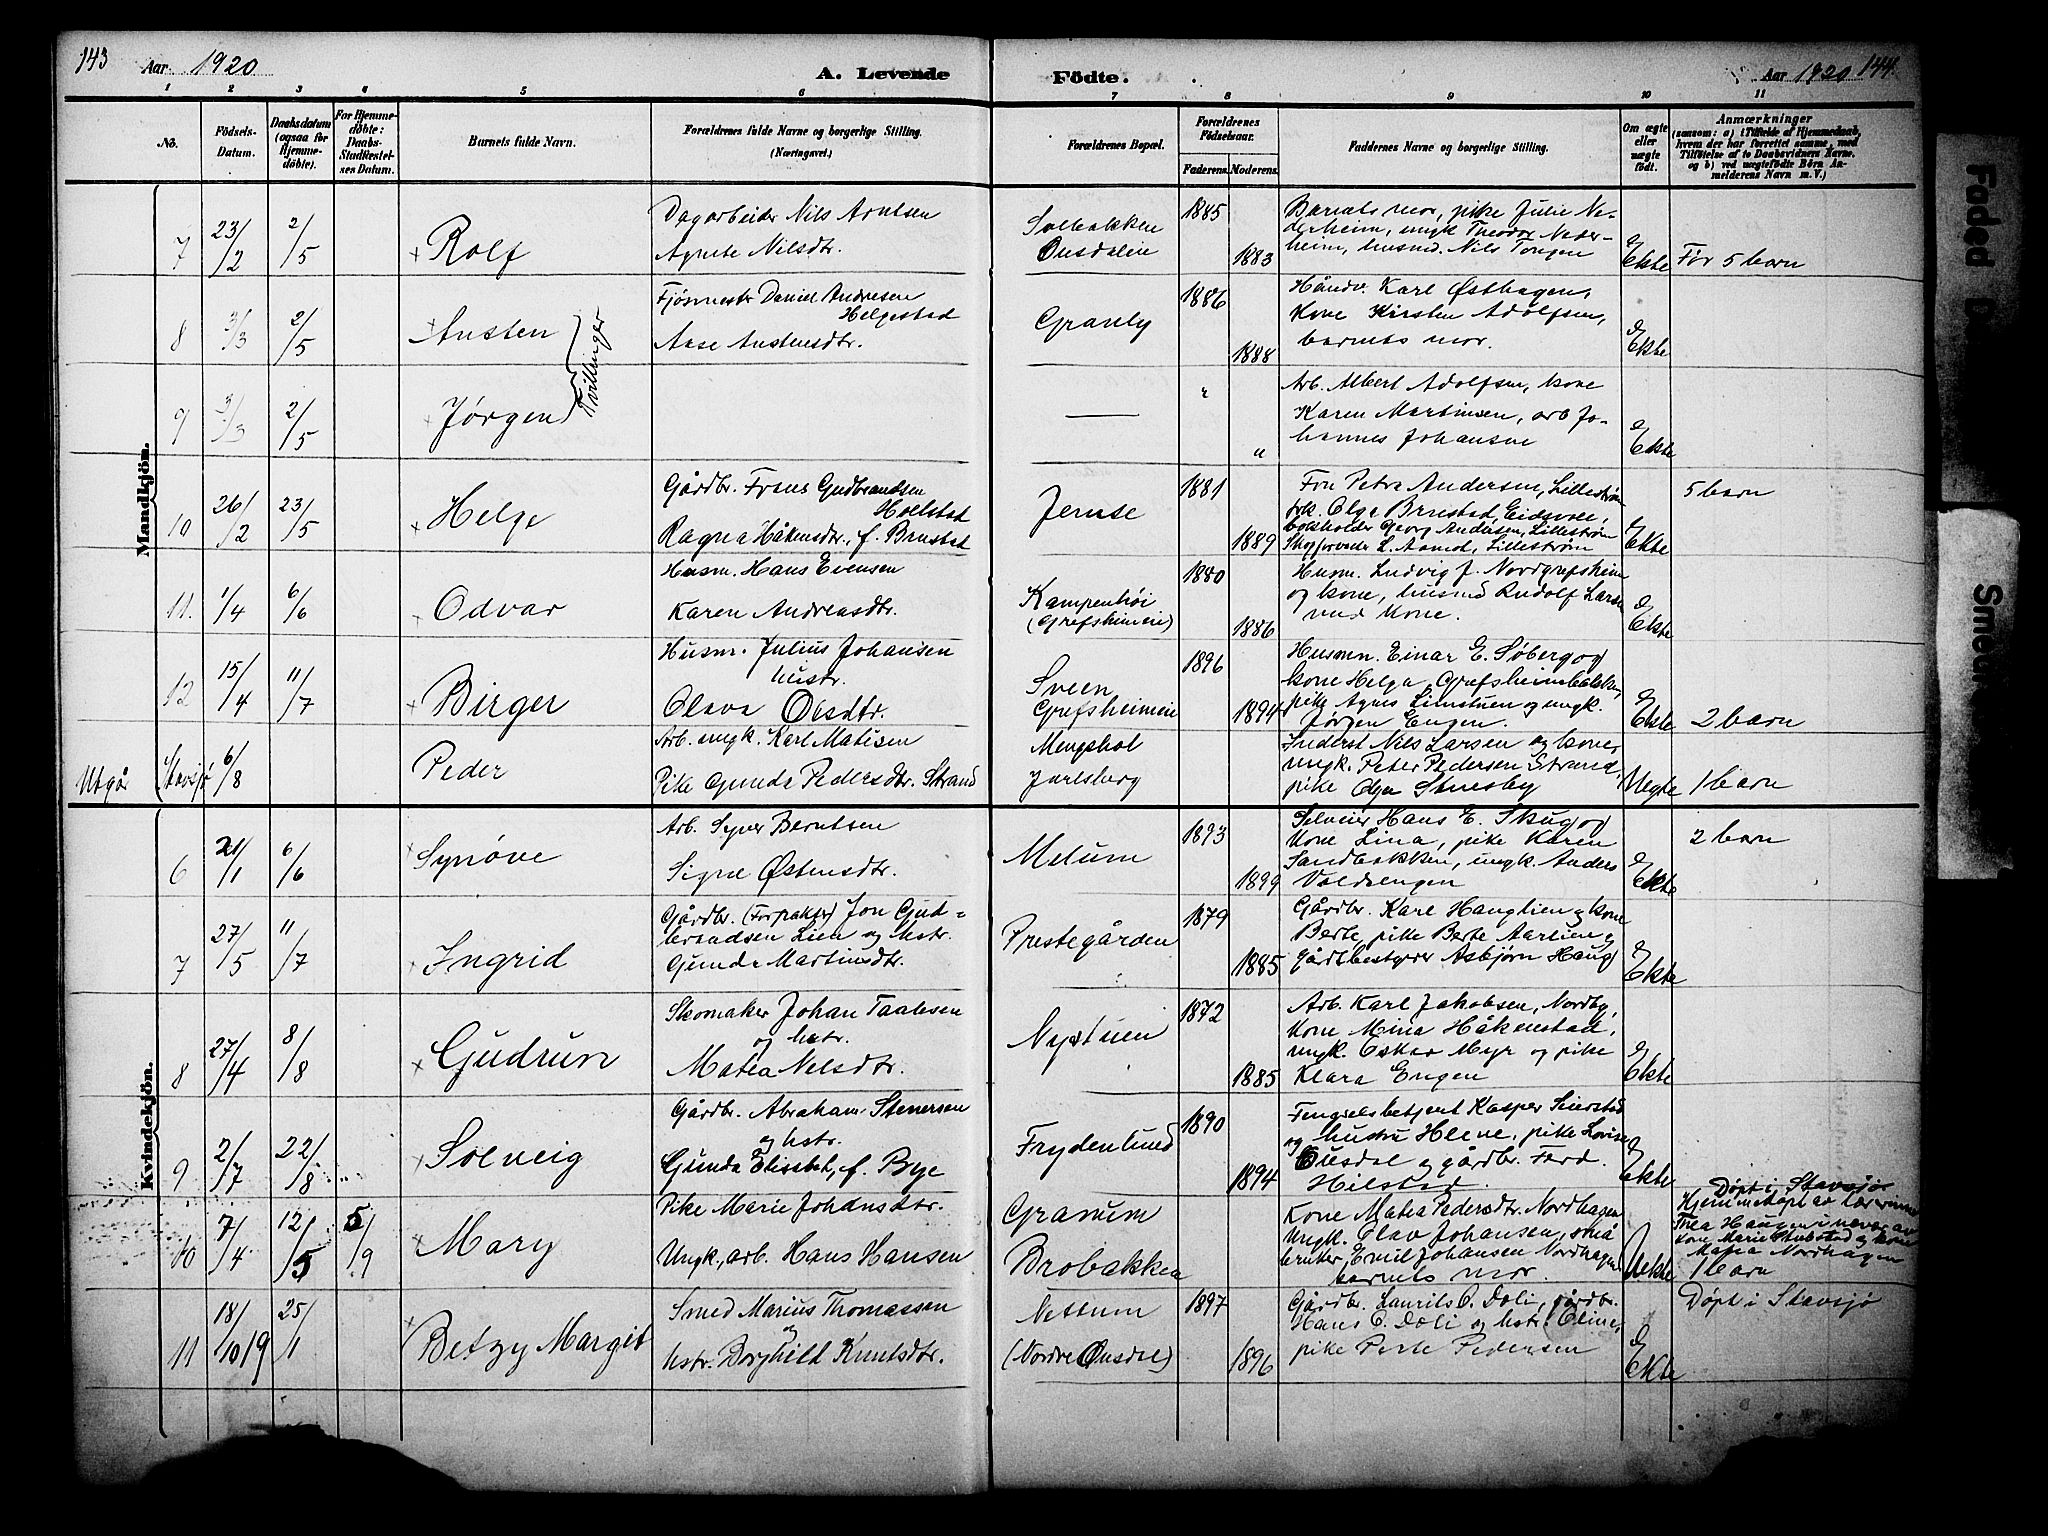 143 Aar 1920 A. Levende Födte. Aar 1920 144.
1 2 3 4 5 6 7 8 9 10 11
No. Födsels-Datum. Daabsdatum (ogsaa for Hjemmedöbte). For Hjemmedöbte: Daabs-Stadfæstelses Datum. Barnets fulde Navn. Forældrenes fulde Navne og borgerlige Stilling. (Næringsvei.) Forældrenes Bopæl. Forældrenes Födselsaar. Faderens. Moderens. Faddernes Navne og borgerlige Stilling. Om ægte eller uægte födt. Anmærkninger
(saasom: a) i Tilfælde af Hjemmedaab,
hvem der har forrettet samme, med
Tilföielse af to Daabsvidners Navne,
og b) ved uægtefödte Börn Anmelderens Navn m. V.)
Mandkjön.
7 23/2 2/5 Rolf
Dagarbeider Nils Arntsen
Agnete Nilsdtr.
Solbakken
Ousdaleie
1885
1883
Barnets mor, pike Julie Ne-
derheim, ungk Theodor Neder-
heim, husmd. Nils Tongen
Ekte
Før 5 barn
8 3/3 2/5 Austen
Tvillinger
Fjøsmester Daniel Andresen
Helgestad
Aase Austensdtr.
Granly
1886
1888
Håndv. Karl Østhagen,
Kone Kirsten Adolfsen,
barnets mor.
Ekte
9 3/3 2/5 Jørgen
"
"
Arb. Albert Adolfsen, kone
Karen Martinsen, arb Jo-
hannes Johansen
Ekte
10 26/2 23/5 Helge
Gårdbr. Frans Gudbrandsen
Hoelstad
Ragna Håkensdtr. f. Brustad
Jemse
1881
1889
Fru Petra Andersen, Lillestrøm
frk. Olga Brustad Eidsvoll,
bokholder Georg Andersen, Lillestrøm
Skogforvalter L. Aamot, Lillestrøm
Ekte
5 barn
11. 1/4 6/6 Odvar
Husm. Hans Evensen
Karen Andreasdtr.
Kampenhøi
(Grefsheimeie)
1880
1886
Husm. Ludvig J. Nordgrefsheim
og kone, husmd Rudolf Larsen
med kone.
Ekte
12 15/4 11/7 Birger
Husm. Julius Johansen
hustr.
Olava Olesdtr.
Sveen
Grefsheimeie
1896
1894
Husmn. Einar E. Søberg og
kone Helga, Grefsheimbakken,
pike Agnes Linstuen og ungk.
Jørgen Engen.
Ekte
2 barn
Utgår (Stavsjø) 6/8 Peder
Arb. ungk. Karl Matisen
Pike Gunda Pedersdtr. Strand
Mengshol
Jarlsberg
Inderst Nils Larsen og kone,
ungk. Peter Pedersen Strand,
pike Olga Stensby
Uegte
1 barn
Kvindekjön.
6 21/1 6/6 Synøve
Arb. Syver Berntsen
Signe Østensdtr.
Melum
1893
1899
Selveier Hans E. Skug og
kone Lina, pike Karen
Sandbakken, ungk. Anders
Voldsengen
Ekte
2 barn
7 27/5 11/7 Ingrid
Gårdbr. (Forpakter) Jon Gud=
brandsen Lien og hstr.
Gunda Martinsdtr.
Prestegården
1879
1885
Gårdbr. Karl Hauglien og kone
Berte, pike Berte Aarlien og
gårdsbestyrer Asbjørn Haug
Ekte
8 27/4 8/8 Gudrun
Skomaker Johan Paalsen
og hstr.
Matea Nilsdtr.
Nystuen
1872
1885
Arb. Karl Jakobsen, Nordby,
kone Mina Håkenstad,
ungk. Oskar Myr og pike
Klara Engen
Ekte
9 2/7 22/8 Solveig
Gårdbr. Abraham Stenersen
og hstr.
Gunda Elisabet, f. Bye
Frydenlund
1890
1894
Fengselsbetjent Kasper Seierstad
og hustru Helene, pike Lovise
Ousdal og gårdbr. Ferd.
Hilstad.
Ekte
10 7/4 12/5 5/9 Mary
Pike Marie Johansdtr.
Ungk., arb. Hans Hansen
Granum
Brobakken
Kone Matea Pedersdtr. Nordhagen
Ungk. Olav Johansen, små
bruker Emil Johansen Nordhagen
barnets mor.
Uekte
Døpt i Stavsjø
Hjemmedøpt av lærerinne
Thea Haugen i nærvær av
kone Marie Skubstad og kone
Matea Nordhagen
1 barn
11 18/10 19 25/1 Betzy Margit
Smed Marius Thomassen
og
hstr. Borghild Knutsdtr.
Nettum
(Nordre Ousdal)
1897
1896
Gårdbr. Laurits O. Doli, gårdbr.
Hans O. Doli og hstr. Eline,
pike Perle Pedersen
Ekte
Døpt i Stavsjø